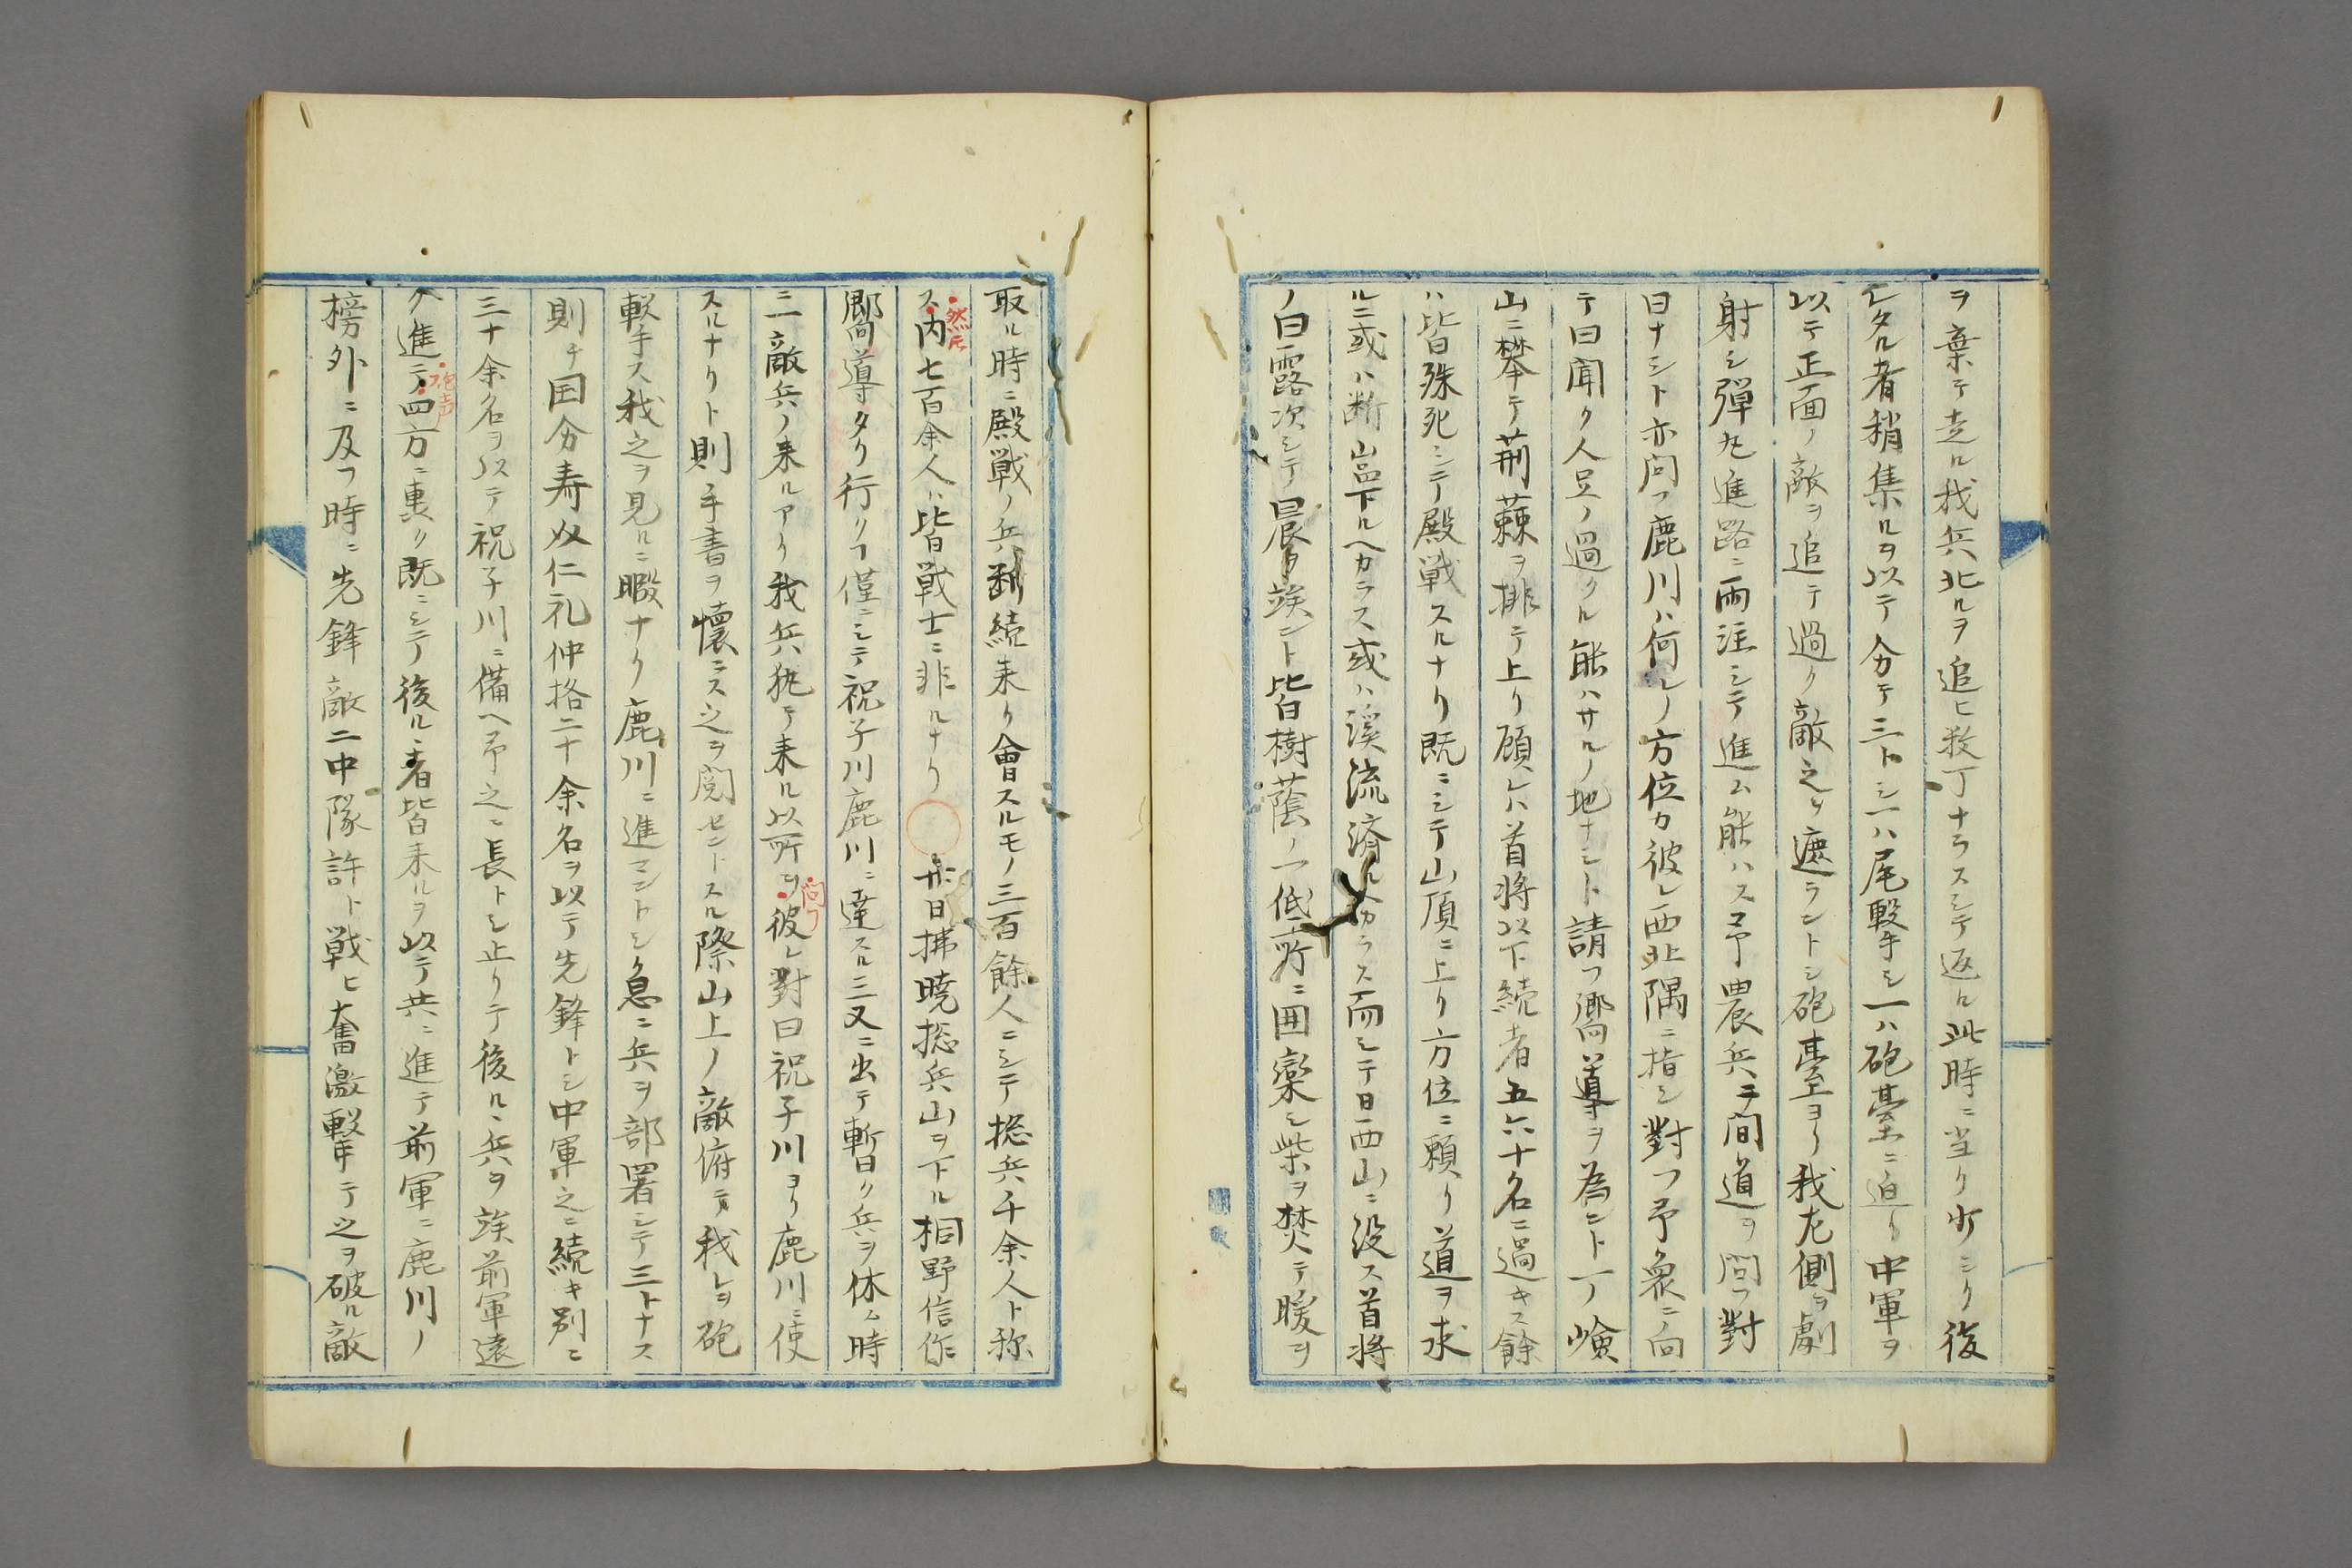 ヲ棄テ走ル我兵北ルヲ追ヒ数丁ナラスシテ返ル此時ニ当リ少シク後
レタル者稍集ルヲ以テ分テ三トシ一ハ尾撃シ一ハ砲臺ニ迫リ中軍ヲ
以テ正面ノ敵ヲ追テ過ク敵之ヲ遮ラントシ砲臺ヨリ我左側ヲ劇
射シ弾丸進路ニ雨注シテ進ム能ハス予農兵ニ間道ヲ問フ對
曰ナシト亦問フ鹿川ハ何レノ方位カ彼レ西北隅ニ指シ對フ予衆ニ向
テ曰聞ク人足ノ過クル能ハサルノ地ナシト請フ嚮導ヲ為ント一ノ嶮
山ニ攀テ荊蕀ヲ排テ上リ顧レハ首将以下続者五六十名ニ過キス餘
ハ皆殊死シテ殿戦スルナリ既ニシテ山頂ニ上リ方位ニ頼リ道ヲ求
ルニ或ハ断嵓下ルヘカラス或ハ溪流済ル分ラス而シテ日西山ニ没ス首将
ノ曰露次シテ晨ヲ竢ント皆樹蔭ノ一低所ニ囲欒シ柴ヲ焚テ暖ヲ
取ル時ニ殿戦ノ兵続来リ會スルモノ三百餘人ニシテ総兵千余人ト称
ス然レ𪜈内七百余人ハ皆戦士ニ非ルナリ 廿日拂暁総兵山ヲ下ル相野信作
嚮導タリ行クヿ僅ニシテ祝子川鹿川ニ達スル三又ニ出テ暫ク兵ヲ休ム時
ニ一敵兵ノ来ルアリ我兵執テ来ル以所ヲ問フ彼レ對曰祝子川ヨリ鹿川ニ使
スルナリト則手書ヲ懐ニス之ヲ閲セントスル際山上ノ敵俯テ我レヲ砲
撃ス我之ヲ見ルニ暇ナク鹿川ニ進マントシ急ニ兵ヲ部署シテ三トナス
則チ国分寿奴仁礼仲格二十余名ヲ以テ先鋒トシ中軍之ニ続キ別ニ
三十余名ヲ以テ祝子川ニ備ヘ予之ニ長トシ止リテ後ルヽ兵ヲ竢前軍遠
ク進テ砲声四方ニ裏ク既ニシテ後ルヽ者皆来ルヲ以テ共ニ進テ前軍ニ鹿川ノ
榜外ニ及フ時ニ先鋒敵二中隊許ト戦ヒ奮激撃テ之ヲ破ル敵